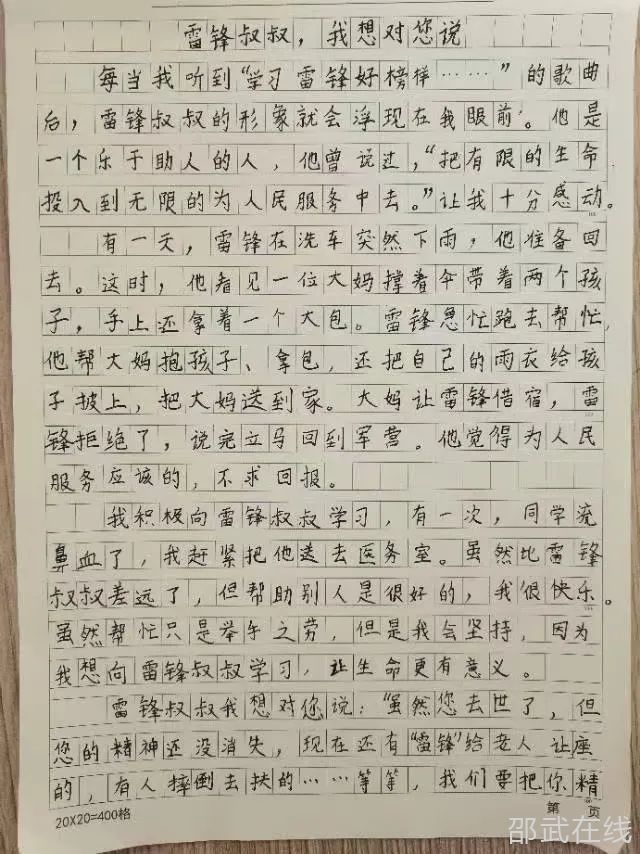 雷锋叔叔，我想对您说
每当我听到“学习雷锋好榜样……”的歌曲
后，雷锋叔叔的形象就会浮现在我眼前。他是
一个乐于助人的人，他曾说过，“把有限的生命
投入到无限的为人民服务中去。”让我十分感动。
有一天，雷锋在洗车突然下雨，他准备回
去。这时，他看见一位大妈撑着伞带着两个孩
子，手上还拿着一个大包。雷锋急忙跑去帮忙，
他帮大妈抱孩子、拿包，还把自己的雨衣给孩
子披上，把大妈送到家。大妈让雷锋借宿，雷
锋拒绝了，说完立马回到军营。他觉得为人民
服务应该的，不求回报。
我积极向雷锋叔叔学习，有一次，同学流
鼻血了，我赶紧把他送去医务室。虽然比雷锋
叔叔差远了，但帮助别人是很好的，我很快乐。
虽然帮忙只是举手之劳，但是我会坚持，因为
我想向雷锋叔叔学习，让生命更有意义。
雷锋叔叔我想对您说：“虽然您去世了，但
您的精神还没消失，现在还有“雷锋”给老人让座
的，有人摔倒去扶的……等等，我们要把你精
20X20=400格
第 页
邵武在线